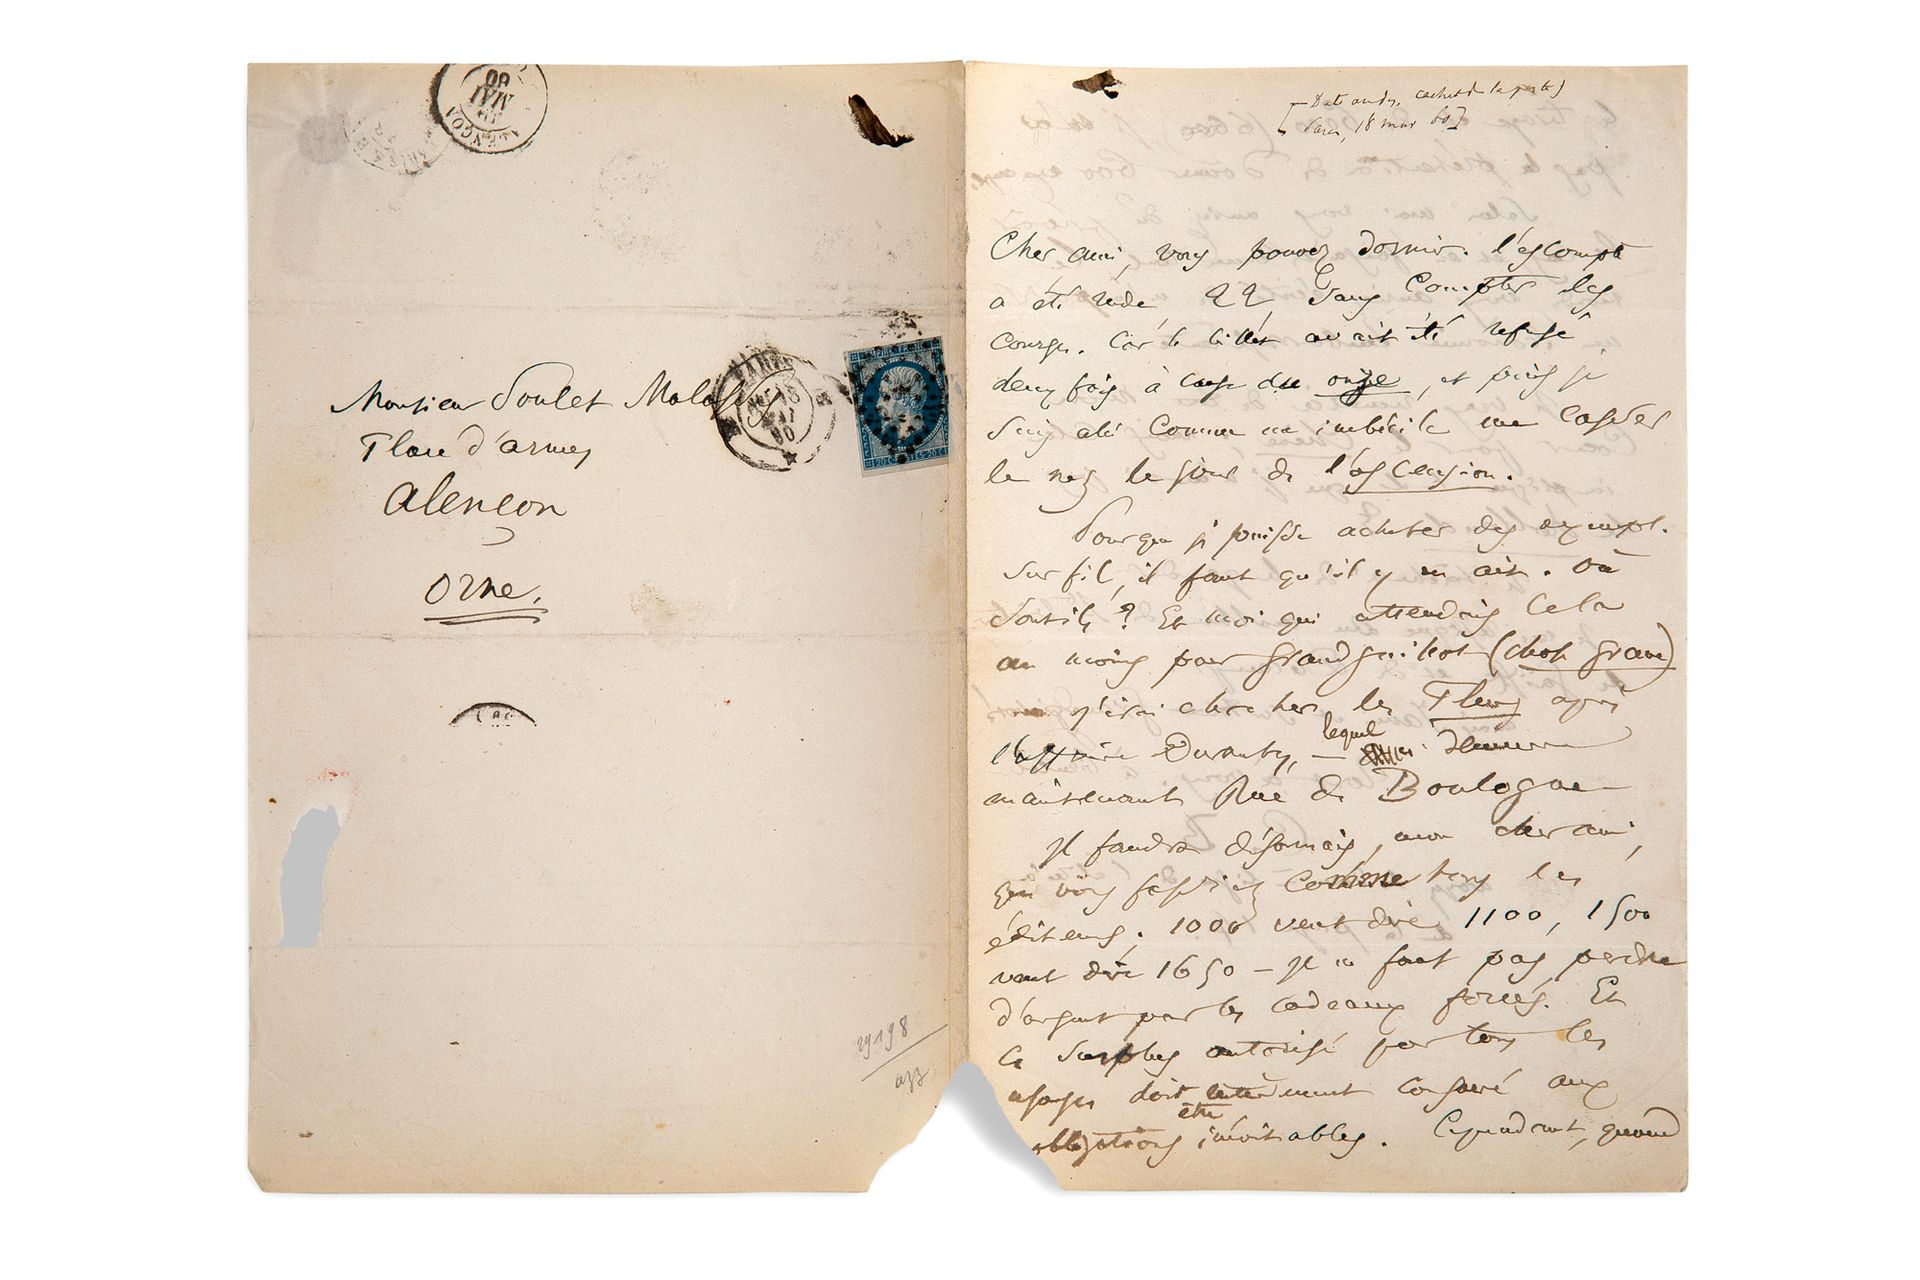 ALENÇON
MAI
60
Monsieur Poulet Malassis
Place d'armes
Alençon
Orne.
PARIS
18
MAI
60
EMPIRE FRANC
20 CENTES 20 C
29198
[Date au dr. cachet de la poste)
Paris, 18 mai 60]
Cher ami, vous pouvez dormir. L'escompte
a été rude, 22 sans compter les
courses. Car le billet avait été refusé
deux fois à cause du onze, et puis je
suis allé comme un imbécile me casser
le nez le jour de l'ascension.
Pour que je puisse acheter des exempl.
sur fil, il faut qu'il y en ait. Où
sont-ils? Et moi qui attendais cela
au moins pour Grandguillot (chose grave)
J'irai chercher les Fleurs après
lequel
l'affaire Duranty, — demeure
maintenant Rue de Boulogne
Il faudra désormais, mon cher ami,
que vous fassiez comme tous les
éditeurs; 1000 veut dire 1100, 1500
veut dire 1650 — Il ne faut pas perdre
d'argent par les cadeaux forcés. Et
ce surplus autorisé par tous les
usages doit être consacré aux
obligations inévitables. Cependant, quand